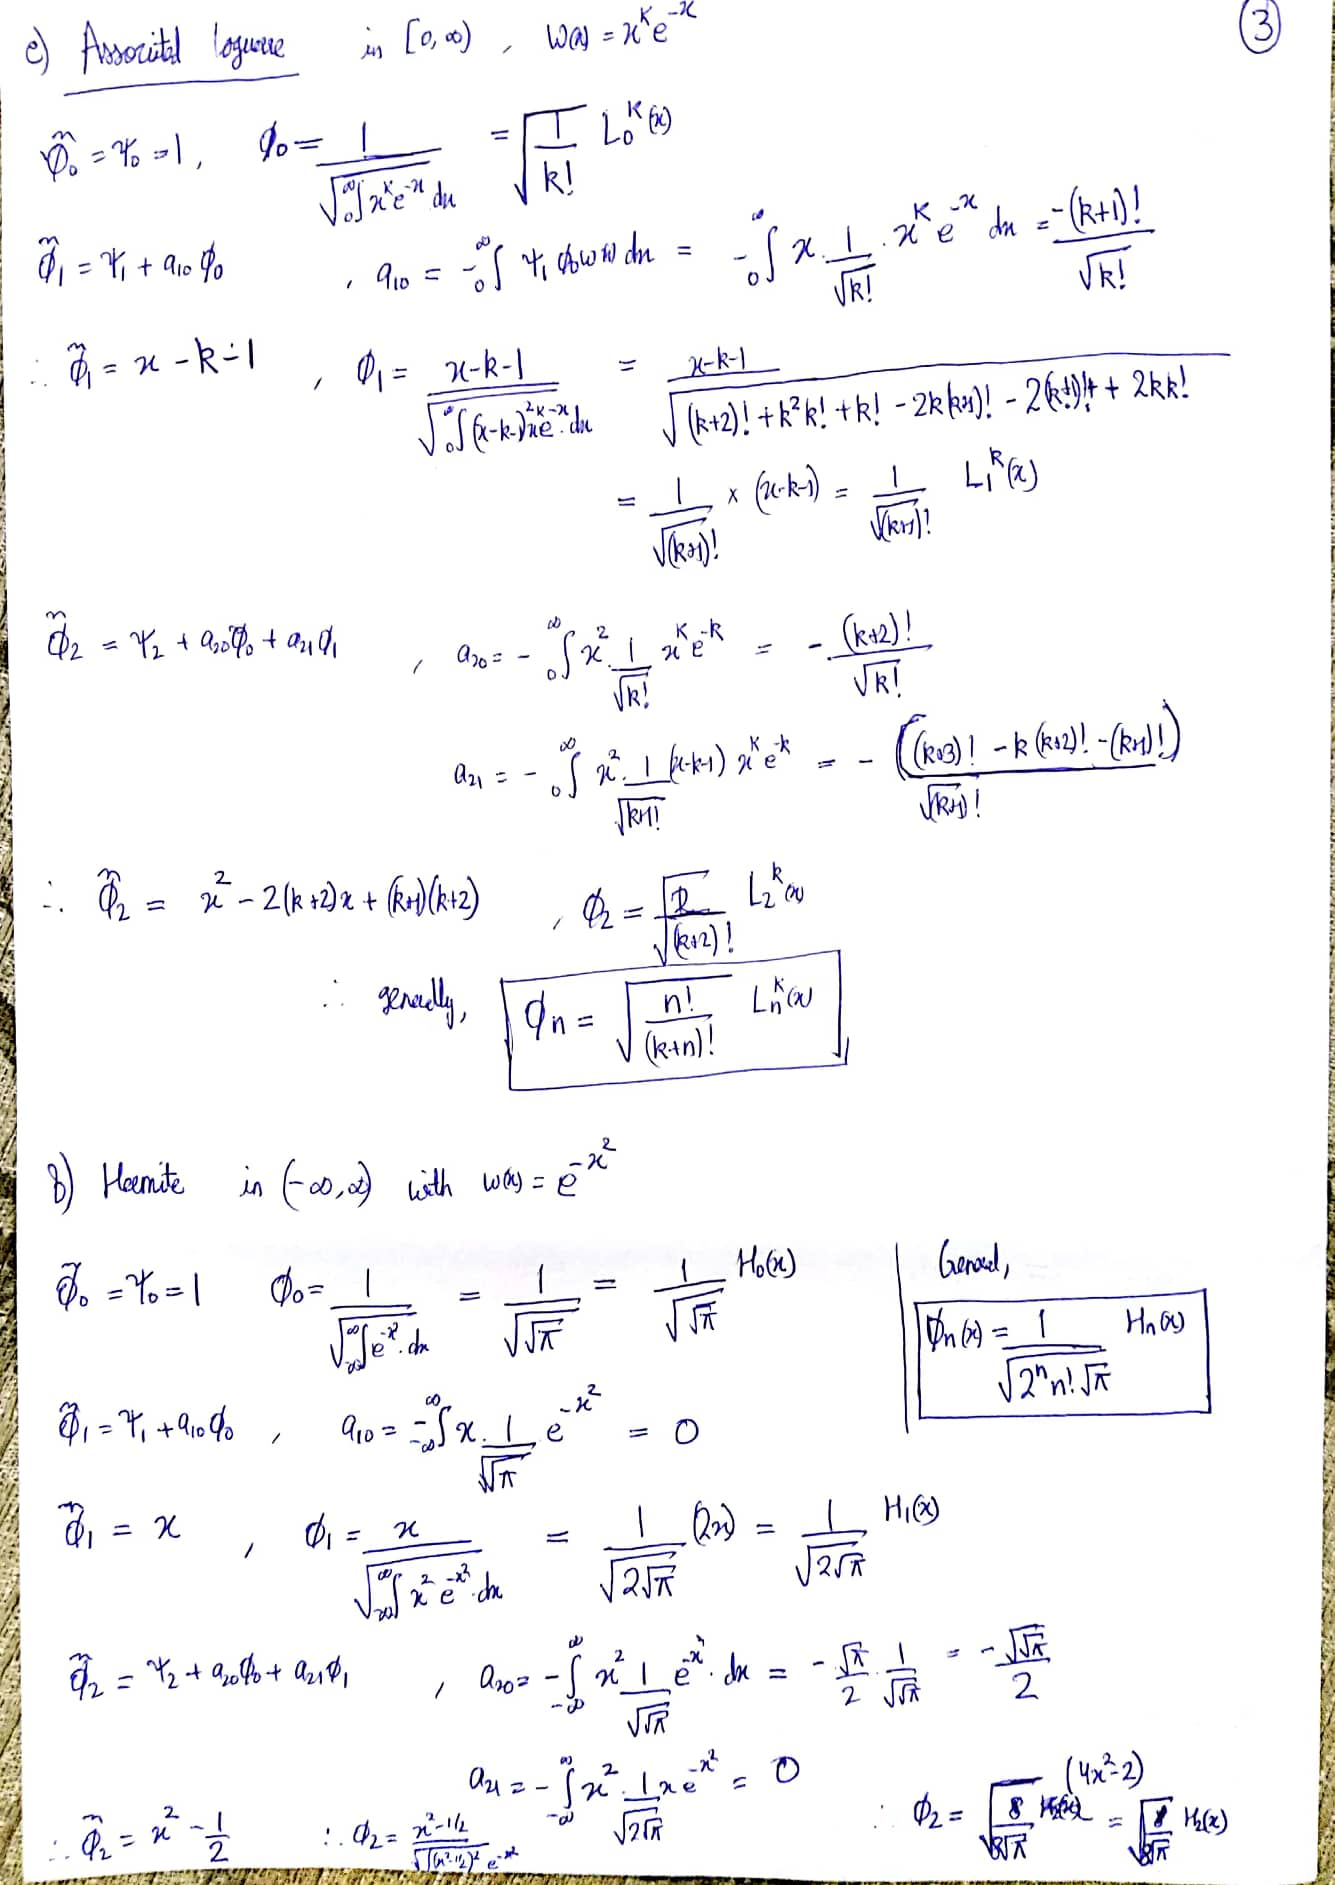 e) Associated Laguerre in [0, ∞) , W(x) = x^k e^-x
③
φ̃₀ = ψ₀ = 1, φ₀ = 1/√(₀∫^∞ x^k e^-x dx) = √(1/k!) L₀^k(x)
φ̃₁ = ψ₁ + a₁₀ φ₀ , a₁₀ = -₀∫^∞ ψ₁ φ₀ w(x) dx = -₀∫^∞ x · 1/√k! · x^k e^-x dx = -(k+1)!/√k!
∴ φ̃₁ = x - k - 1 , φ₁ = (x-k-1)/√(₀∫^∞ (x-k-1)² x^k e^-x · dx) = (x-k-1)/√((k+2)! + k²k! + k! - 2k(k+1)! - 2(k+1)! + 2kk!)
= 1/√(k+1)! × (x-k-1) = 1/√(k+1)! L₁^k(x)
φ̃₂ = ψ₂ + a₂₀φ₀ + a₂₁φ₁ , a₂₀ = - ₀∫^∞ x² · 1/√k! x^k e^-k = - (k+2)!/√k!
a₂₁ = - ₀∫^∞ x² · 1/√k+1! (x-k-1) x^k e^-k = - ((k+3)! - k(k+2)! - (k+1)!)/√(k+1)!
∴ φ̃₂ = x² - 2(k+2)x + (k+1)(k+2) , φ₂ = √(2/(k+2)!) L₂^k(x)
∴ generally, φn = √(n!/(k+n)!) Ln^k(x)
f) Hermite in (-∞, ∞) with w(x) = e^-x²
φ̃₀ = ψ₀ = 1 φ₀ = 1/√(-∞∫^∞ e^-x² · dx) = 1/√√π = 1/√√π H₀(x)
General,
φn(x) = 1/√(2^n n! √π) Hn(x)
φ̃₁ = ψ₁ + a₁₀φ₀ , a₁₀ = - -∞∫^∞ x · 1/√√π e^-x² = 0
φ̃₁ = x , φ₁ = x/√(-∞∫^∞ x² e^-x² · dx) = 1/√(2√π) (2x) = 1/√(2√π) H₁(x)
φ̃₂ = ψ₂ + a₂₀φ₀ + a₂₁φ₁ , a₂₀ = - -∞∫^∞ x² 1/√√π e^-x² · dx = - √π/2 · 1/√√π = - √√π/2
a₂₁ = - -∞∫^∞ x² · 1/√(2√π) x e^-x² = 0
∴ φ̃₂ = x² - 1/2 ∴ φ₂ = (x²-1/2)/√(∫(x²-1/2)² e^-x²) ∴ φ₂ = (4x²-2) = √(1/8√π) H₂(x)